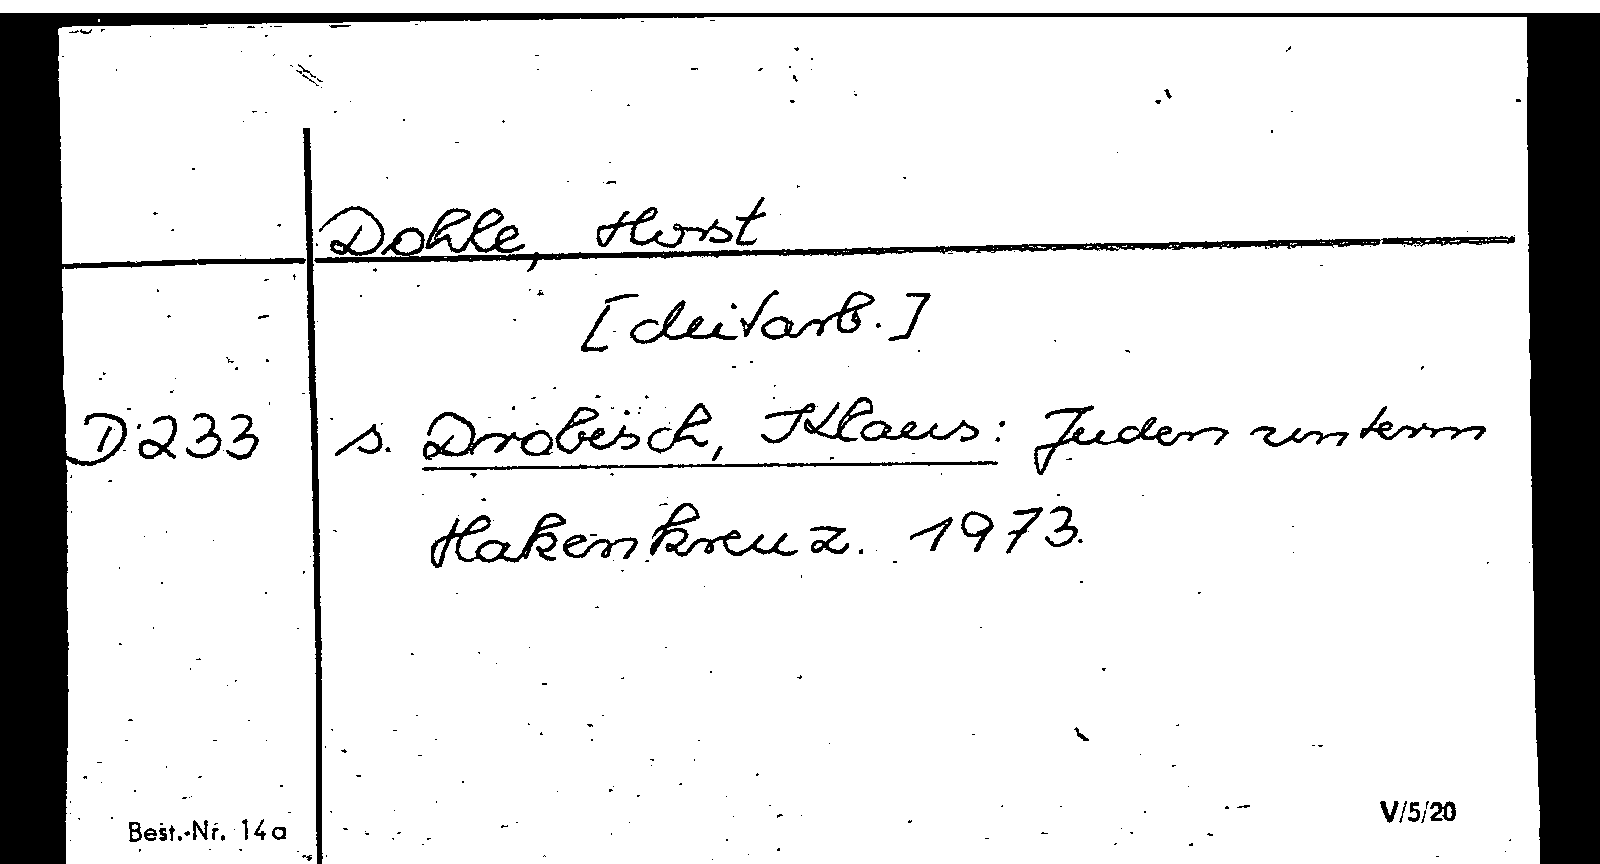 Dohle, Horst
[Mitarb.]
D 233 s. Drobisch, Klaus: Juden unterm
Hakenkreuz. 1973.
Best.-Nr. 14a V/5/20